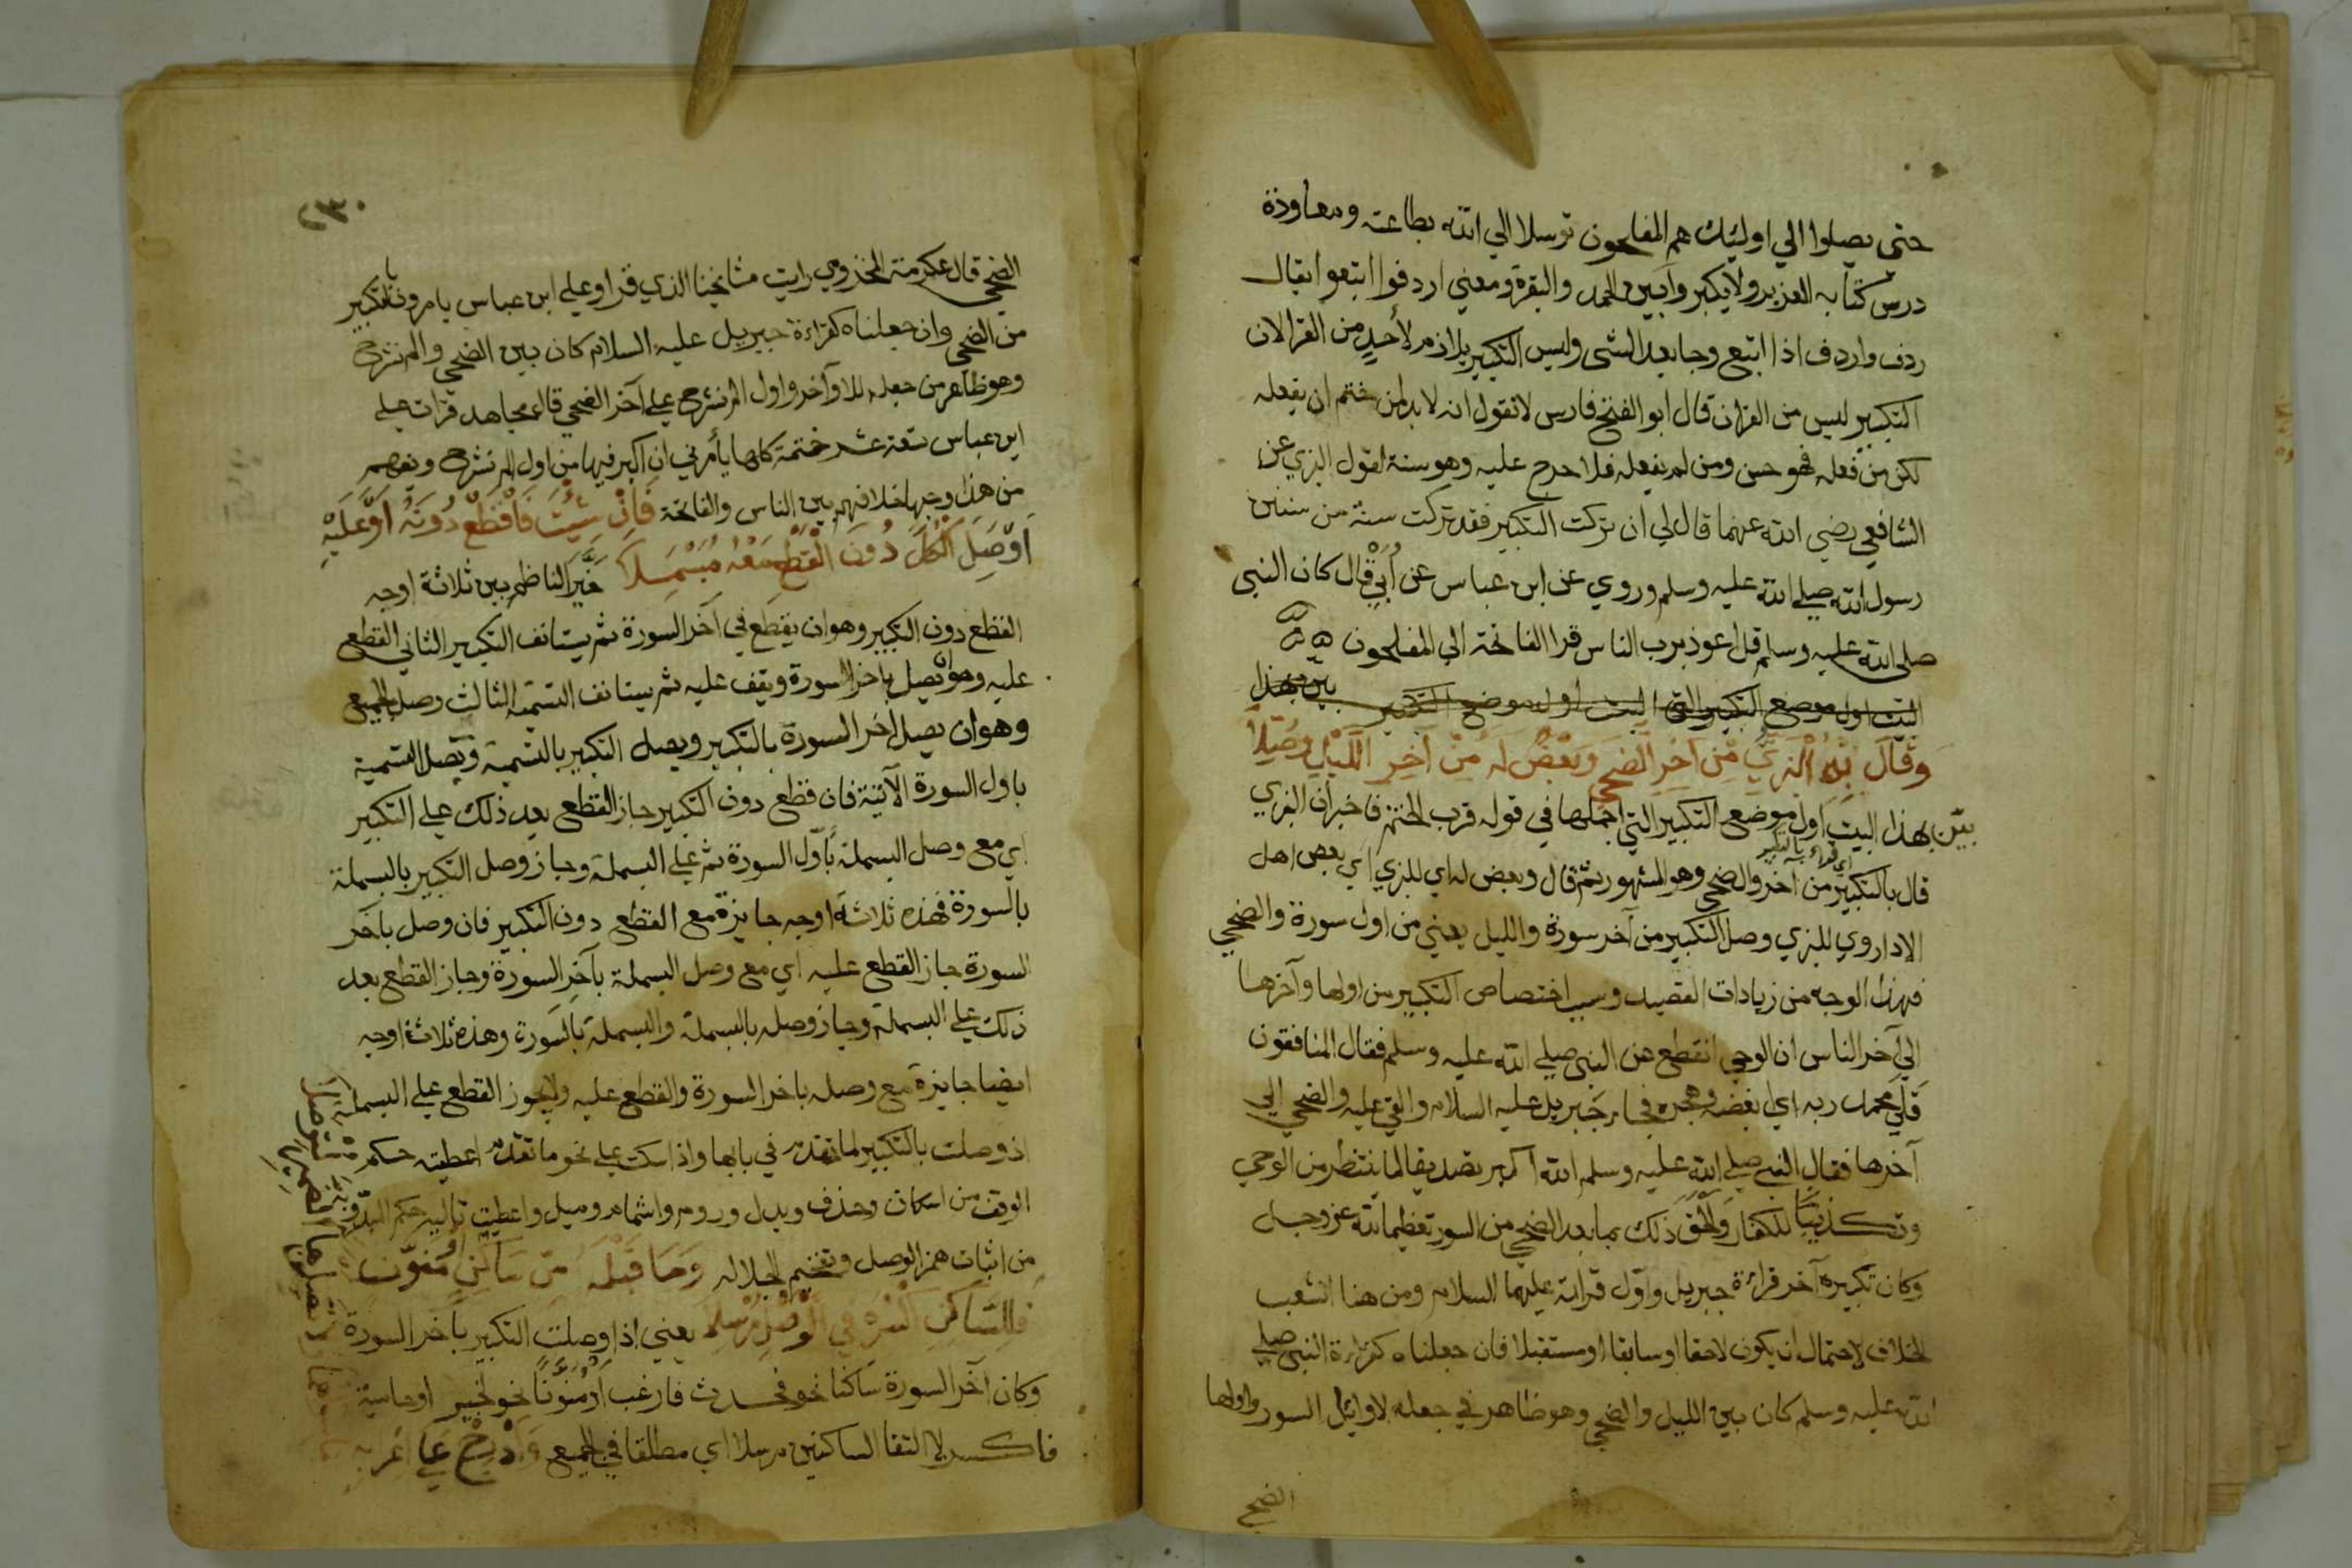 حتى يصلوا الي اوليئك هم المفلحون توسلا الي الله بطاعته ومعاودة
درس كتابه العزيز ولا يكبر وابين الحمد والبقرة ومعني اردفوا اتبعوا يقال
ردف واردف اذا اتبع وجا بعد الشى وليس التكبير بلازم لأحدٍ من القرا لان
التكبير ليس من القران قال ابو الفتح فارس لا نقول انه لا بد لمن ختم ان يفعله
لكن من فعله فهو حسن ومن لم يفعله فلا حرج عليه وهو سنة لقول البزي عن
الشافعي رضي الله عنهما قال لي ان تركت التكبير فقد تركت سنة من سنن
رسول الله صلى الله عليه وسلم وروي عن ابن عباس عن أُبَيْ قال كان النبى
صلى الله عليه وسلم قل اعوذ برب الناس قرا الفاتحة الي المفلحون
البيت اول موضع التكبير التى البيت اول موضع التكبير بين بهذا
وَقَالَ بِهِ الْبَزِّيُّ مِنْ آخِرِ الضُّحَى وَبَعْضٌ لَهُ مِنْ آخِرِ اللَّيْلِ وَصَّلَا
بيّن بهذا البيت اول موضع التكبير التي اجملها في قوله قرب الختم فاخبر ان البزي
قال بالتكبير من آخر والضحى وهو المشهور ثم قال وبعض له اي للبزي اي بعض اهل
اي قراء بالتكبير
الادا روي للبزي وصل التكبير من آخر سورة والليل يعني من اول سورة والضحي
فهذا الوجه من زيادات القصيد وسبب اختصاص التكبير من اولها وآخرها
الي آخر الناس ان الوحي انقطع عن النبى صلي الله عليه وسلم فقال المنافقون
قلي محمدا ربه اي ابغضه وهجره فجاء جبريل عليه السلام والقي عليه والضحي الي
آخرها فقال النبي صلي الله عليه وسلم الله اكبر تصديقا لما ينتظر من الوحي
وتكذيبًا للكفار وَأَلْحَقَ ذلك بما بعد الضحي من السور تعظيما لله عز وجل
وكان تكبيره آخر قراءة جبريل واوّل قراته عليهما السلام ومن هنا انشعب
الخلاف لاحتمال ان يكون لاحقا او سابقا او مستقبلا فان جعلناه كقراءة النبى صلي
الله عليه وسلم كان بين الليل والضحي وهو ظاهر في جعله لاوايل السور واولها
الضحي
٢٣٠
الضحي قال عكرمة المخزومي رايت مشايخنا الذي قراو علي ابن عباس يامرون بالتكبير
من الضحي وان جعلناه كقراءة جبريل عليه السلام كان بين الضحي والم نشرح
وهو ظاهر من جعله للاوآخر واول الم نشرح علي آخر الضحي قال مجاهد قرات علي
ابن عباس تسعة عشر ختمة كلها يأمرني ان اكبر فيها من اول الم نشرح ويفهم
من هذا وجها خلافهم بين الناس والفاتحة فَإِنْ شِئْتَ فَاقْطَعْ دُونَهُ أَوْ عَلَيْهِ
أَوْ صِلِ الْكُلَّ دُونَ الْقَطْعِ مَعْهُ مُبَسْمِلَا خَيَّر الناظم بين ثلاثة اوجه
القطع دون التكبير وهو ان يقطع في آخر السورة ثم يستانف التكبير الثاني القطع
عليه وهو ان يصل باخر السورة ويقف عليه ثم يستانف التسمية الثالث وصل الجميع
وهو ان يصل اخر السورة بالتكبير ويصل التكبير بالتسمية ويصل التسمية
باول السورة الآتية فان قطع دون التكبير جاز القطع بعد ذلك علي التكبير
اي مع وصل البسملة بأول السورة ثم علي البسملة وجاز وصل التكبير بالبسملة
بالسورة فهذه ثلاثة اوجه جايزة مع القطع دون التكبير فان وصل بآخر
السورة جاز القطع عليه اي مع وصل البسملة بآخر السورة وجاز القطع بعد
ذلك علي البسملة وجاز وصله بالبسملة والبسملة بالسورة وهذه ثلاثة اوجه
ايضا جايزة مع وصله باخر السورة والقطع عليه ولا يجوز القطع علي البسملة
اذ وصلت بالتكبير لما تقدم في بابها واذا سكت علي نحو ما تقدم اعطيته حكم
الوقف من اسكان وحذف وبدل وروم واشمام وميل واعطيت تاليه حكم المبدو به
من اثبات همز الوصل وتفخيم الجلاله وَمَا قَبْلَهُ مِنْ سَاكِنٍ أَوْ مُنَوَّنٍ
فَلِلسَّاكِنِ اكْسِرْهُ فِي الْوَصْلِ مُرْسَلَا يعني اذا وصلت التكبير بآخر السورة
وكان آخر السورة ساكنا نحو فحدث فارغب أو مُنَوَّنًا نحو لخبير او حامية
فاكسر لالتقا الساكنين مرسلا اي مطلقا في الجميع وَأَدْرِجْ عَلَى إعْرَابِهِ